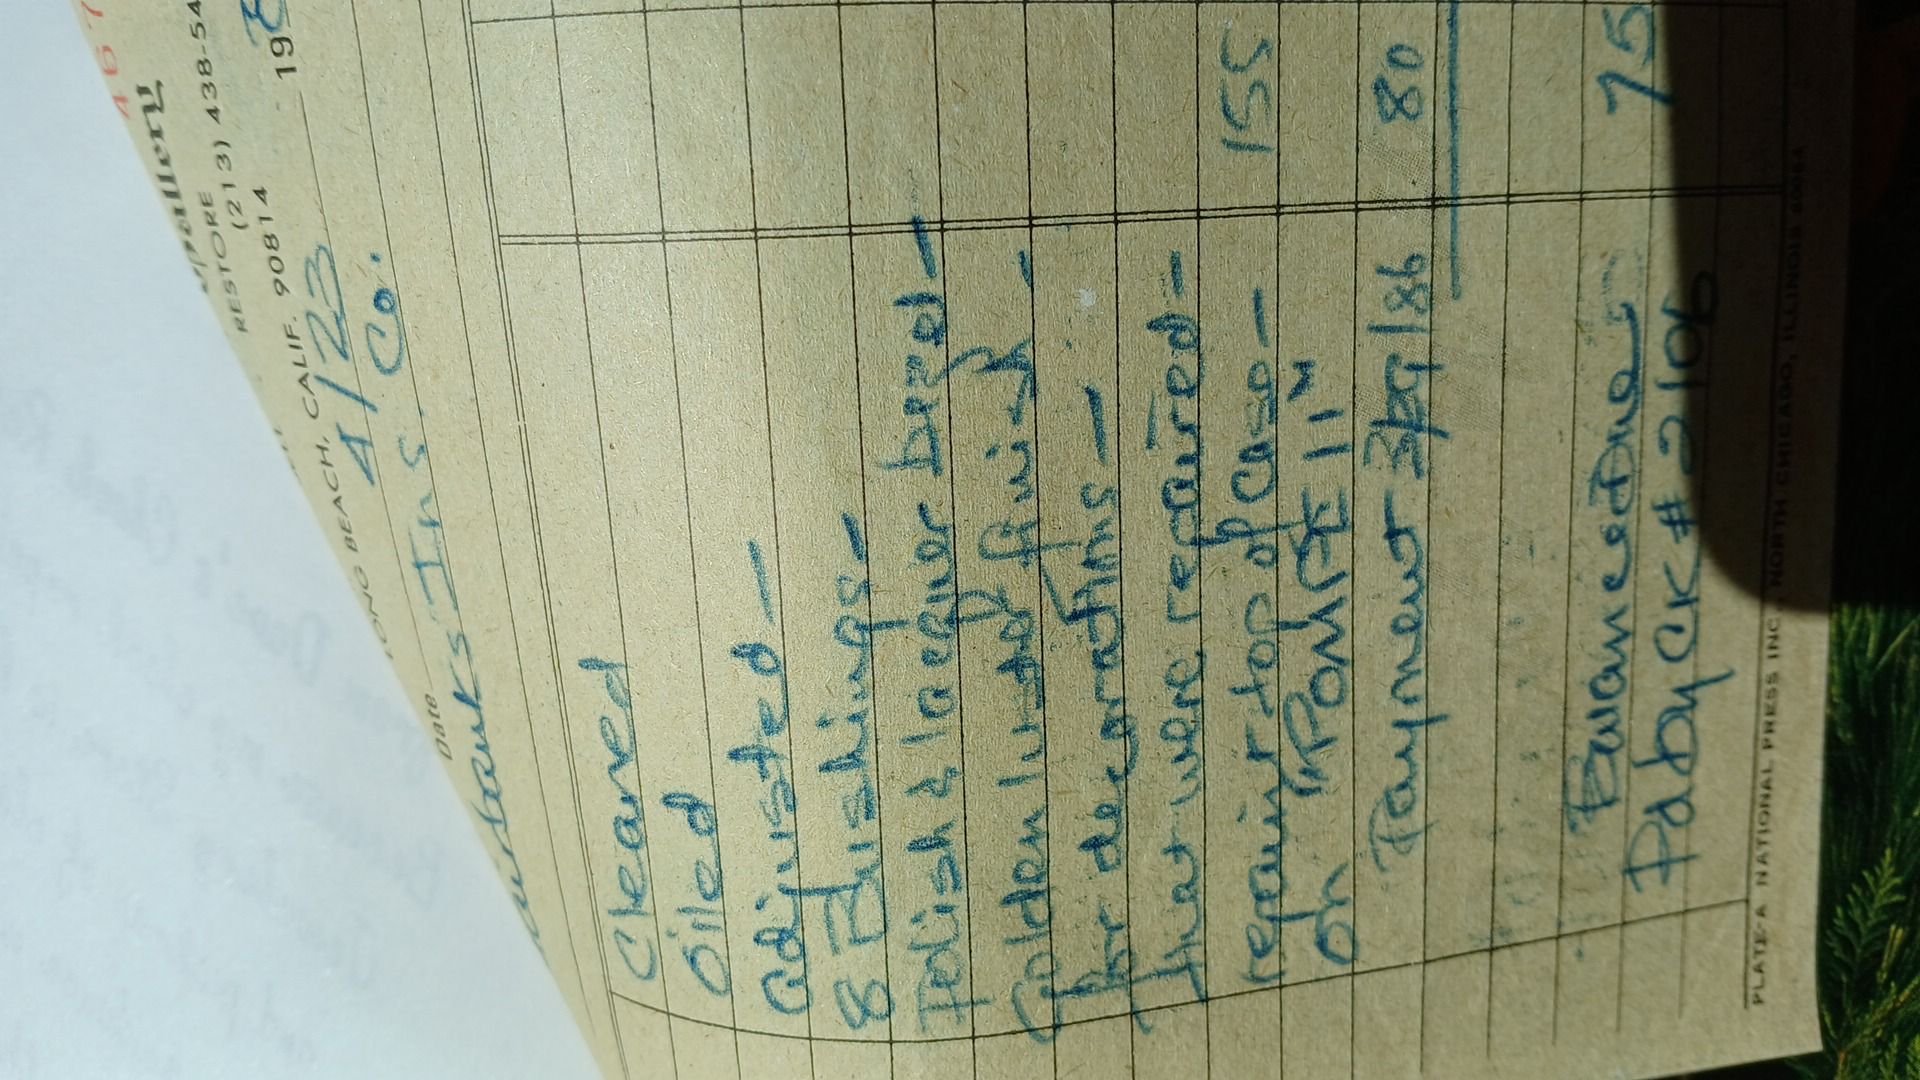 467
RESTORE (213) 438-54
LONG BEACH, CALIF. 90814
Date 4/23 19
Ins. Co.
Cleaned
Oiled
adjusted —
8 Bushings —
Polish & lacquer bezel —
Golden luster finish -
for decorations —
that were repaired —
repair top of case — 155
on "POMPE II"
Payment 3/29/86 80
Balance Due 75
Pd by CK # 2106
PLATE-A NATIONAL PRESS INC., NORTH CHICAGO, ILLINOIS 60064